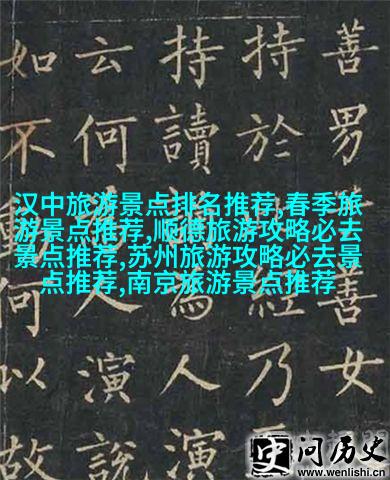 善男善女
持於經乃
持讀為人演
云何人演說
如不何以故
汉中旅游景点排名推荐,春季旅
游景点推荐,顺德旅游攻略必去
景点推荐,苏州旅游攻略必去景
点推荐,南京旅游景点推荐
史问历史
www.wenlishi.cn